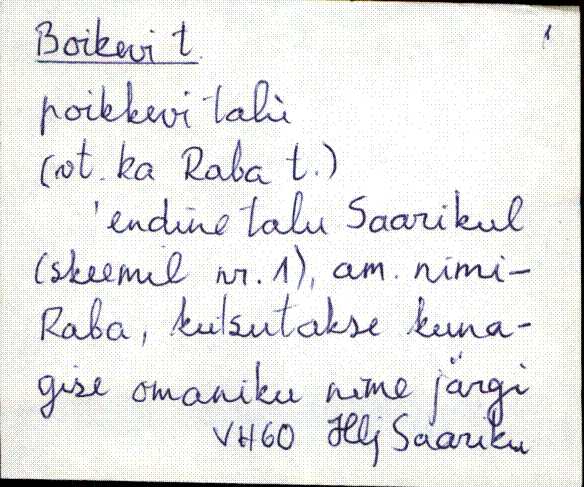 Boikevi t. 1
poikkevi talù
(vt. ka Raba t.)
'endine talu Saarikul
(skeemil nr. 1), am. nimi-
Raba, kutsutakse kuna-
gise omaniku nime järgi
VH60 Hlj Saariku